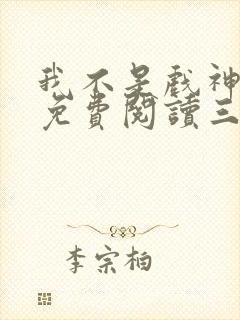 我不是戲神
免費閱讀三
李宗柏